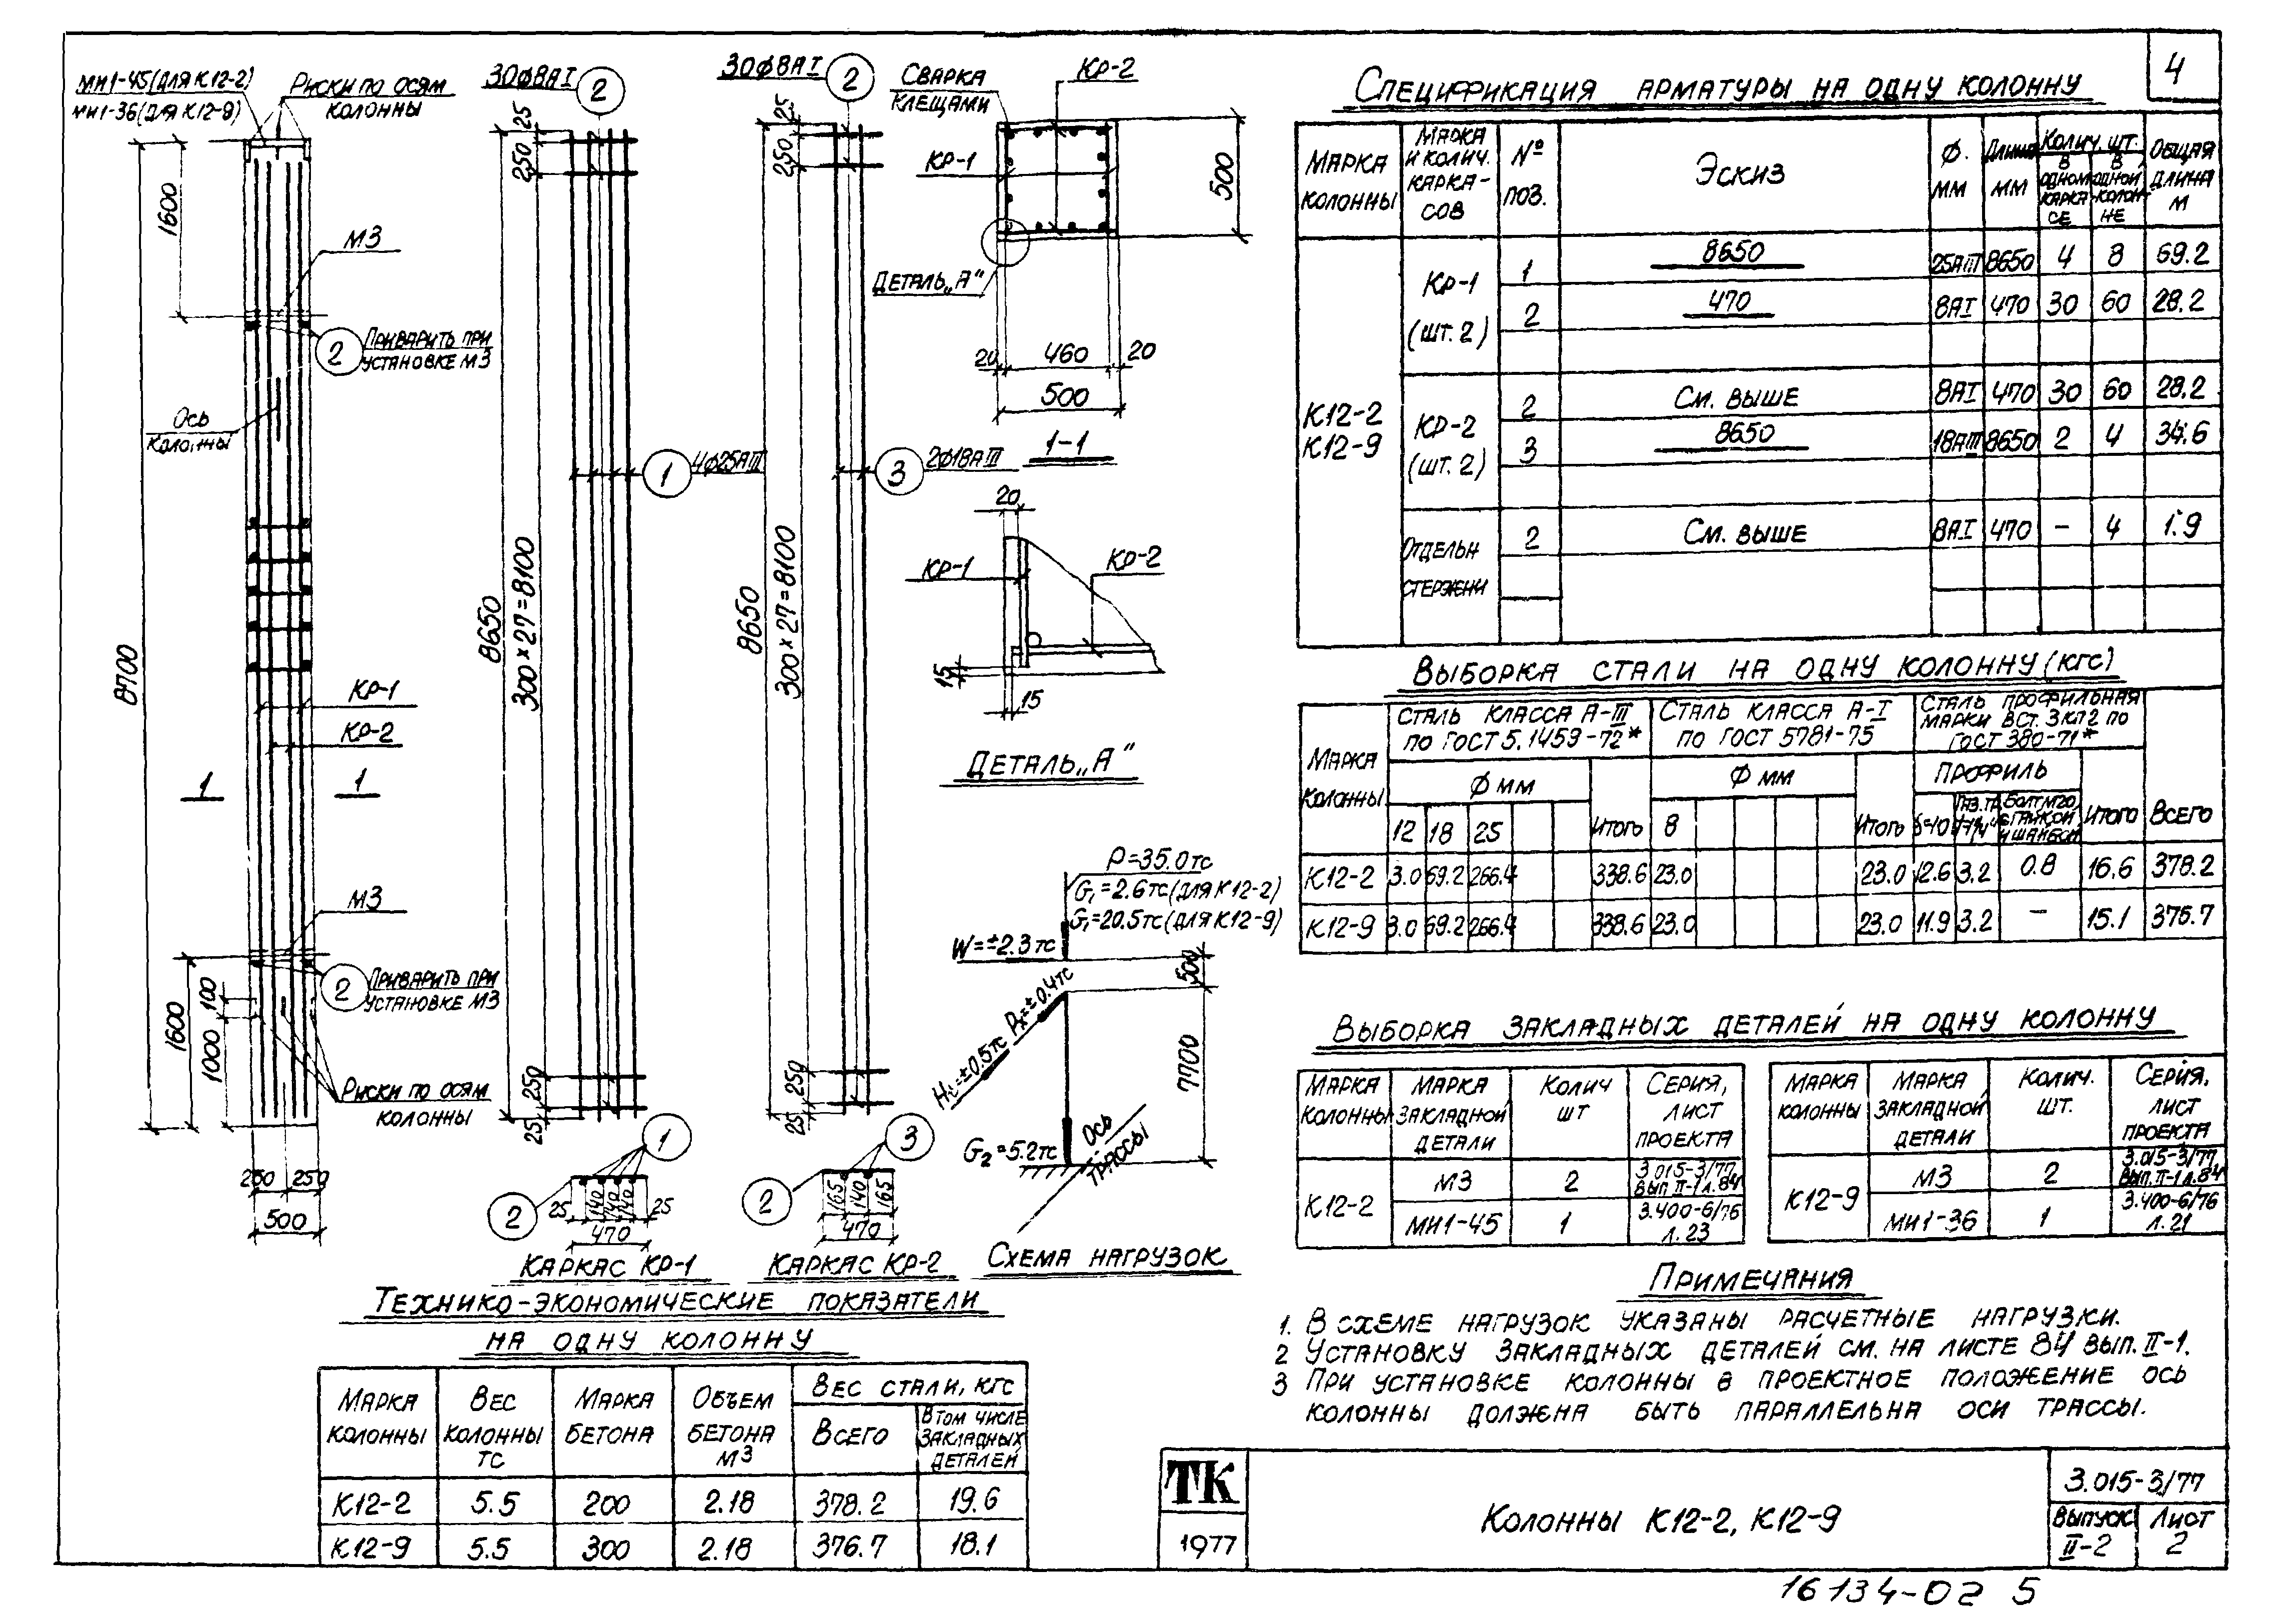 4
МИ1-45(ДЛЯ К12-2)
МИ1-36(ДЛЯ К12-9)
Риски по осям
колонны
8700
1600
М3
2
Приварить при
установке М3
Ось
колонны
КР-1
КР-2
1
1
М3
2
Приварить при
установке М3
1600
1000
100
Риски по осям
колонны
250 250
500
30Ф8АI
2
25
250
8650
300×27=8100
1
4Ф25АIII
250
25
1
2
25 140 140 140 25
470
Каркас КР-1
30Ф8АI
2
25
250
8650
300×27=8100
3
2Ф18АIII
250
25
3
2
165 140 165
470
Каркас КР-2
Сварка
клещами
КР-2
КР-1
500
Деталь „А"
20 460 20
500
1-1
20
КР-1
КР-2
15
15
Деталь „А"
P=35.0тс
G₁=2.6тс(для К12-2)
G₁=20.5тс(для К12-9)
W=±2.3тс
500
7700
G₂=5.2тс
Ось
трассы
Схема нагрузок
Спецификация арматуры на одну колонну
Марка колонны
Марка и колич. каркасов
№ поз.
Эскиз
Ф. мм
Длина мм
Колич. шт.
в одном каркасе
в одной колонне
Общая длина м
К12-2
К12-9
КР-1 (шт. 2)
1 8650 25АIII 8650 4 8 69.2
2 470 8АI 470 30 60 28.2
КР-2 (шт. 2)
2 См. выше 8АI 470 30 60 28.2
3 8650 18АIII 8650 2 4 34.6
Отдельн стержни
2 См. выше 8АI 470 – 4 1.9
Выборка стали на одну колонну (кгс)
Марка колонны
Сталь класса А-III
по ГОСТ 5.1459-72*
Сталь класса А-I
по ГОСТ 5781-75
Сталь профильная
марки ВСт. 3кп2 по
ГОСТ 380-71*
Ф мм
Ф мм
Профиль
12 18 25 Итого 8 Итого Болт М20 с гайкой и шайбой Итого Всего
К12-2 3.0 69.2 266.4 338.6 23.0 23.0 12.6 3.2 0.8 16.6 378.2
К12-9 3.0 69.2 266.4 338.6 23.0 23.0 11.9 3.2 – 15.1 376.7
Выборка закладных деталей на одну колонну
Марка колонны
Марка закладной детали
Колич шт
Серия, лист проекта
К12-2
М3 2 3.015-3/77 Вып II-1 л.84
МИ1-45 1 3.400-6/76 л.23
Марка колонны
Марка закладной детали
Колич. шт.
Серия, лист проекта
К12-9
М3 2 3.015-3/77 Вып. II-1 л.84
МИ1-36 1 3.400-6/76 л.21
Технико-экономические показатели
на одну колонну
Марка колонны
Вес колонны тс
Марка бетона
Объем бетона м3
Вес стали, кгс
Всего
В том числе закладных деталей
К12-2 5.5 200 2.18 378.2 19.6
К12-9 5.5 300 2.18 376.7 18.1
Примечания
1. В схеме нагрузок указаны расчетные нагрузки.
2 Установку закладных деталей см. на листе 84 вып. II-1.
3 При установке колонны в проектное положение ось
колонны должна быть параллельна оси трассы.
ТК
1977
Колонны К12-2, К12-9
3.015-3/77
Выпуск II-2
Лист 2
16134-02 5